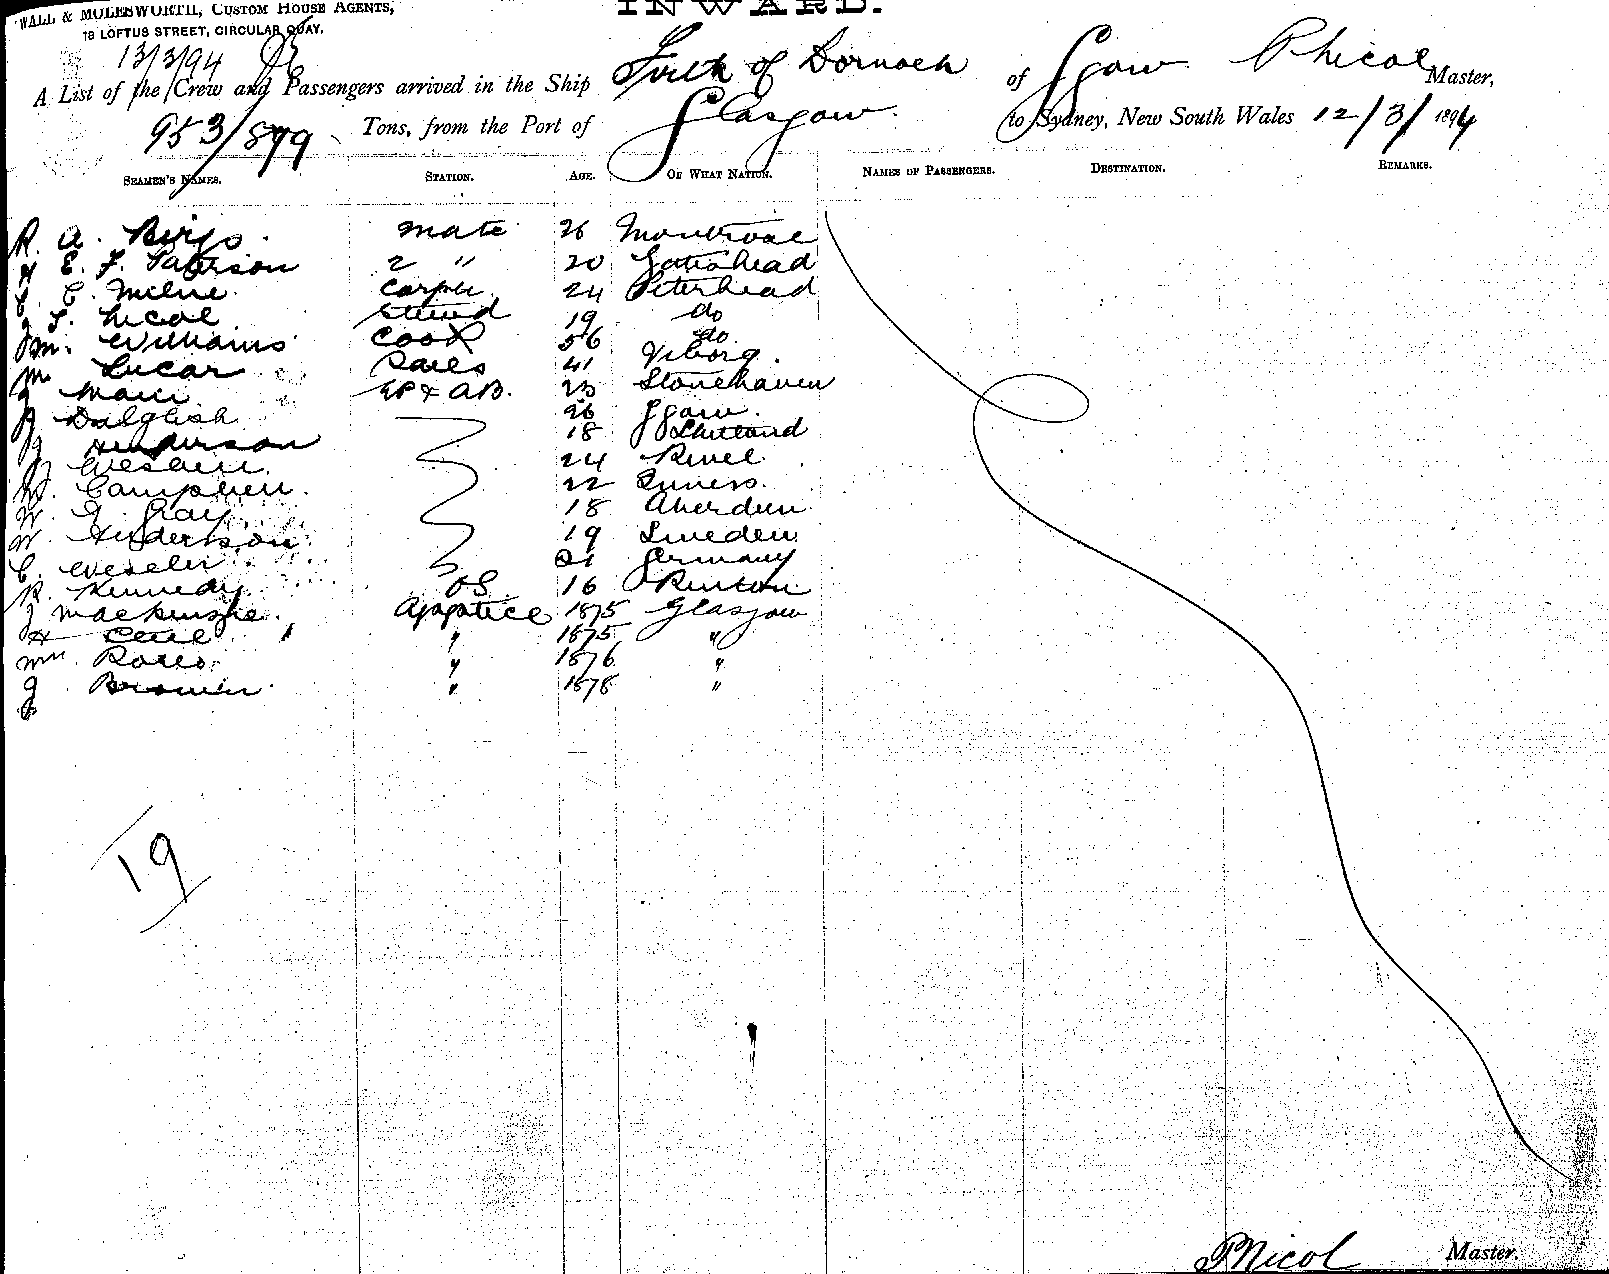 WALL & MOLESWORTH, CUSTOM HOUSE AGENTS,
78 LOFTUS STREET, CIRCULAR QUAY.
INWARD.
13/3/94
A List of the Crew and Passengers arrived in the Ship Firth of Dornoch of Ggow P Nicol Master,
953/899 Tons, from the Port of Glasgow to Sydney, New South Wales 12/3/1894
SEAMEN'S NAMES. STATION. AGE. OF WHAT NATION. NAMES OF PASSENGERS. DESTINATION. REMARKS.
R. A. mate 26 Montrose
E. F. Paterson 2 " 20 Gateshead
C. Milne Carptr 24 Peterhead
Nicol Stewd 19 do
Williams Cook 56 do
Lucar Sails 41 Viborg.
Main & AB. 23 Stonehaven
Dalglish 26 Ggow.
Henderson 18 Shetland
24 Revel
Campbell. 22 Inness.
Gray 18 Aberdeen
19 Sweden
21 Germany
Kennedy OS 16 Renton
Mackenzie. Appntice 1875 Glasgow
Cecil " 1875 "
" 1876 "
Brown " 1878 "
19
P Nicol Master.